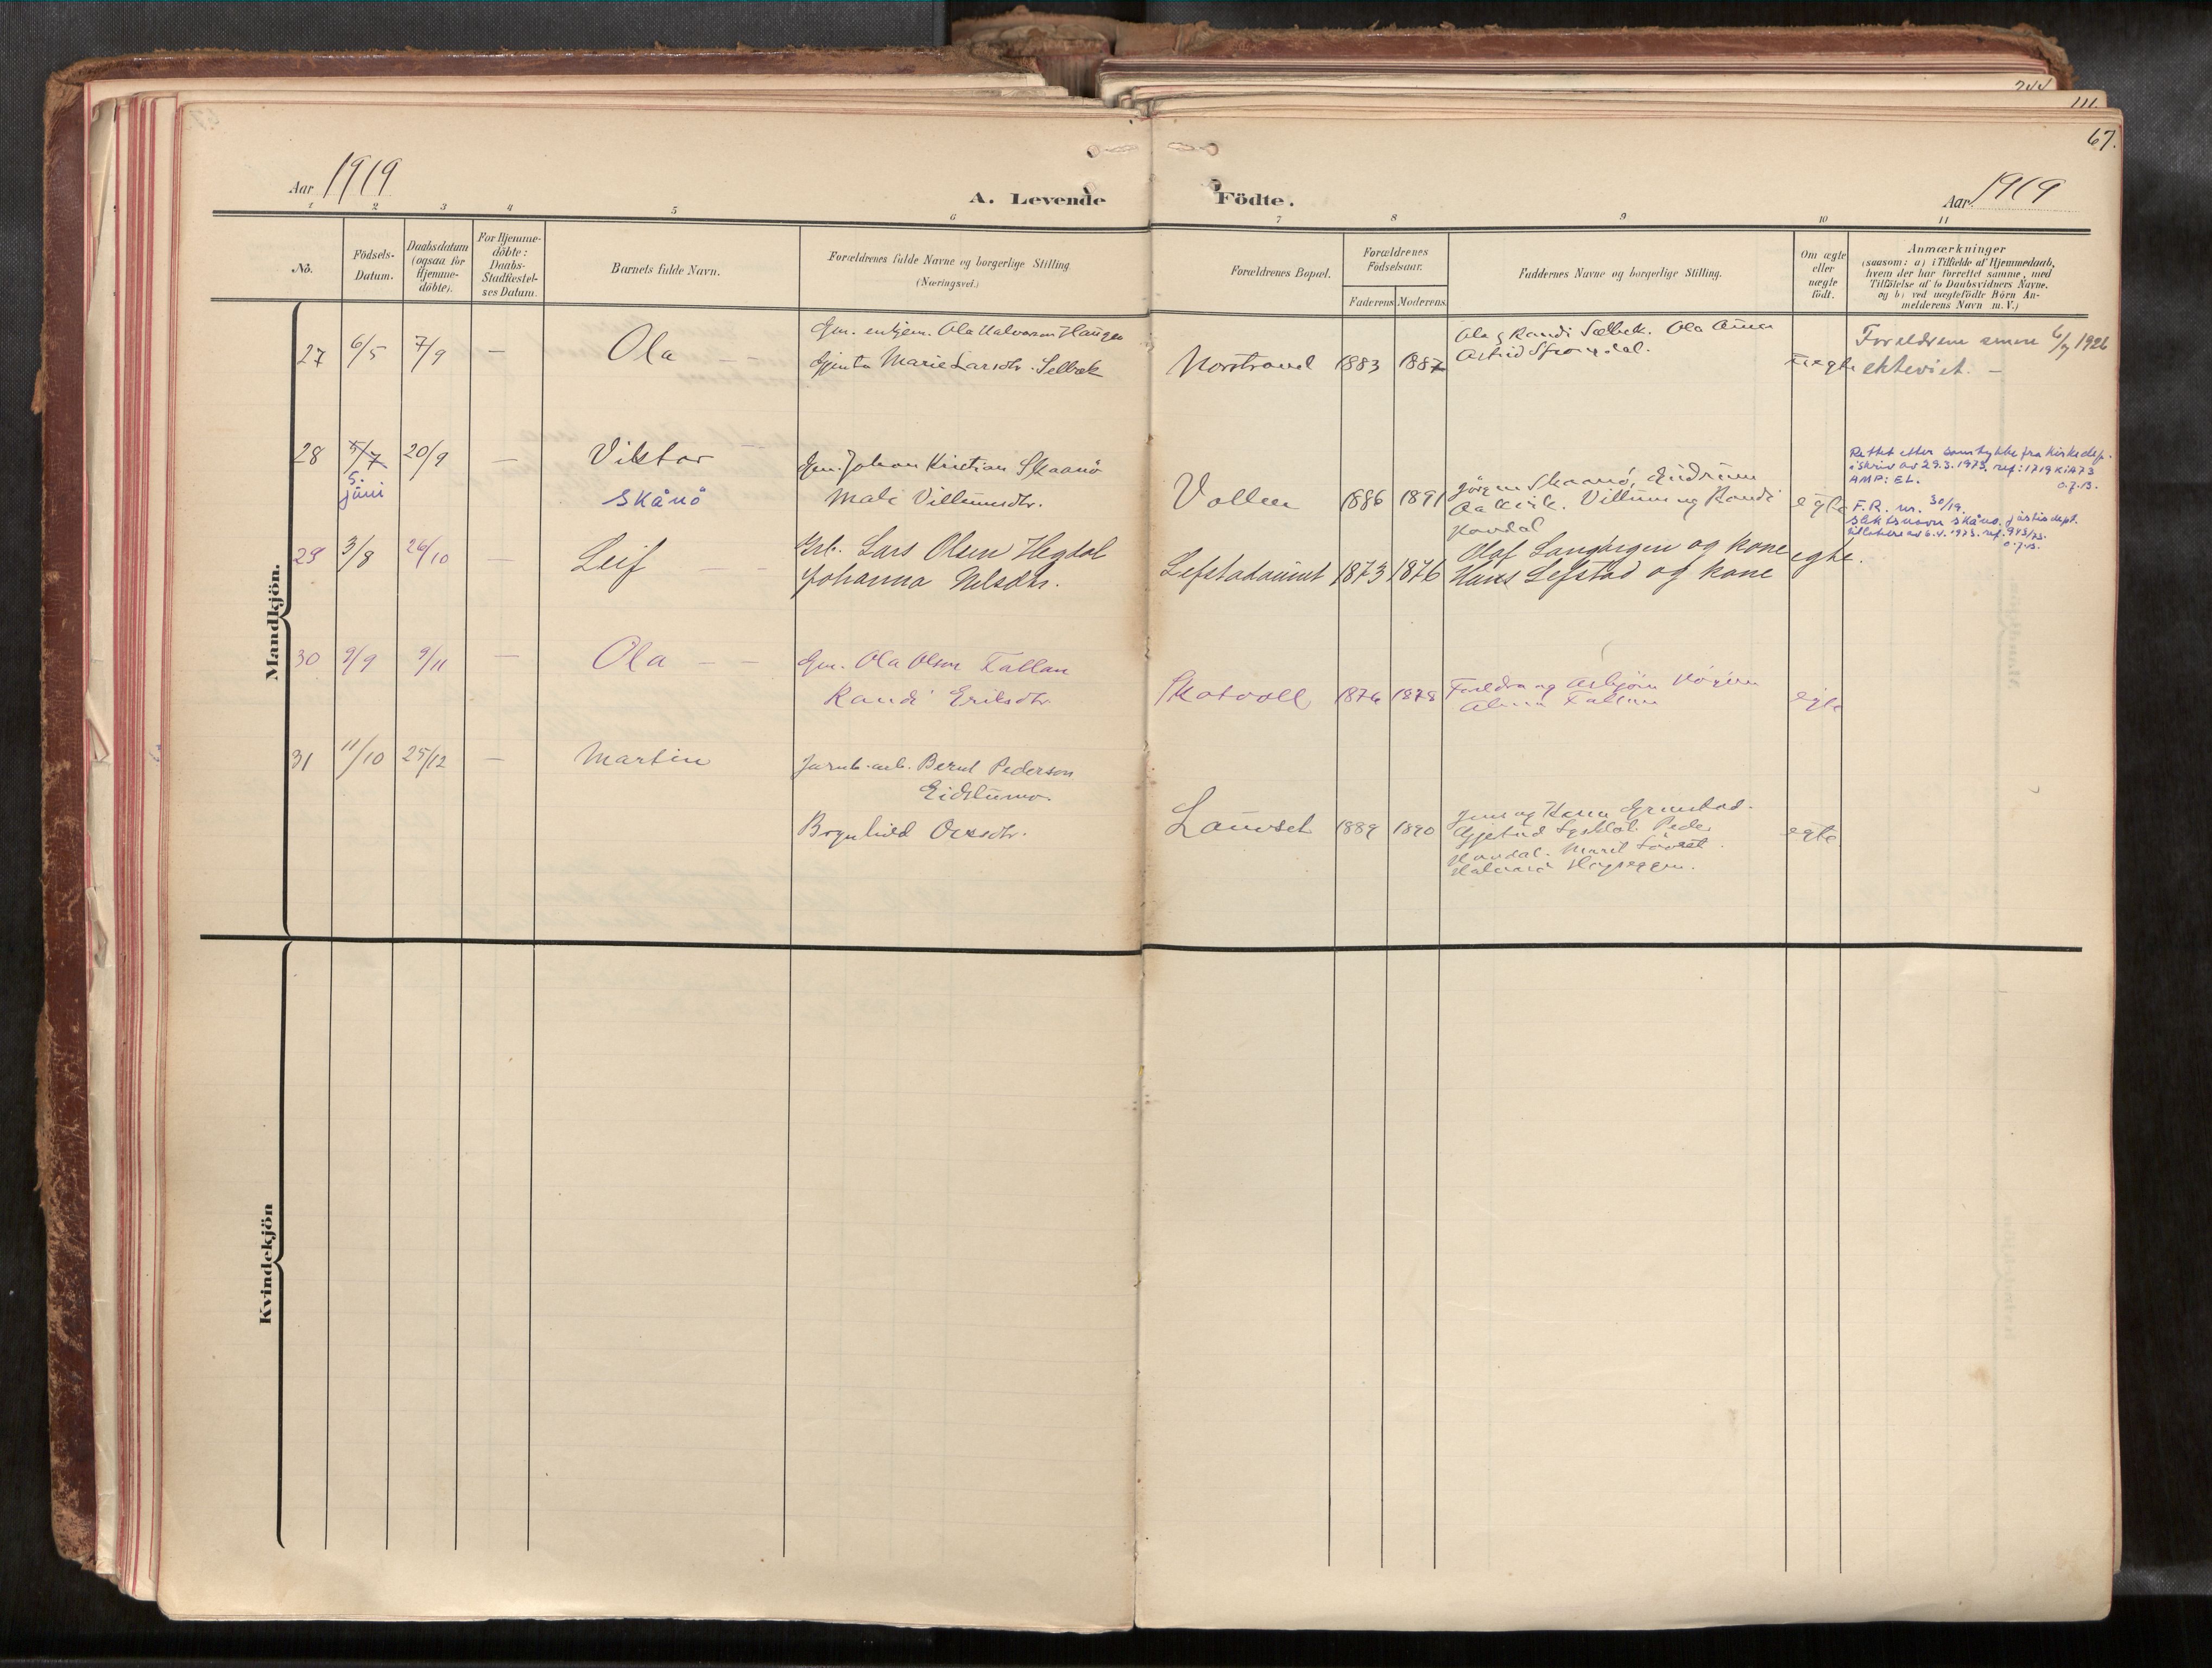 244
111.
67.
Aar 1919
A. Levende
Födte.
Aar 1919
1 2 3 4 5 6 7 8 9 10 11
No.
Födsels-
Datum.
Daabsdatum
(ogsaa for
Hjemme-
döbte).
For Hjemme-
döbte:
Daabs-
Stadfæstel-
ses Datum.
Barnets fulde Navn.
Forældrenes fulde Navne og borgerlige Stilling
(Næringsvei.)
Forældrenes Bopæl.
Forældrenes
Födselsaar.
Faderens
Moderens
Faddernes Navne og borgerlige Stilling.
Om ægte
eller
uægte
födt.
Anmærkninger
(saasom: a) i Tilfælde af Hjemmedaab,
hvem der har forrettet samme, med
Tilföielse af to Daabsvidners Navne.
og b) ved uægtefödte Börn An-
melderens Navn m. V.)
Mandkjön.
27 6/5 7/9 — Ola —
Gm. ungkm. Ola Halvorsen Haugen
Gjenta Marie Larsdtr. Selbæk
Norstrand 1883 1887
Ola og Randi Selbæk. Ola
Astrid
uegte
Foreldrene 6/7 1926
ekteviet. —
28 5/7 20/9 — Viktor —
5.
juni
Skånö
Gm. Johan Kristian Skaanö
Mali Villumsdtr.
Vollen 1886 1891
Jörgen Skaanö,
Villum og Randi
Hovdal
egte
Rettet etter samtykke fra Kirkedep.
i skriv av 29.3.1973, ref: 1719 K i A 73
AMP: EL.
F.R. nr. 30/19.
Slektsnavn Skånö. Justisdept.
tillatelse av 6.4.1973. ref. 943/73.
29 3/8 26/10 — Leif —
Lars Olsen Hegdal
Johanna Nilsdtr.
Lefstadaunet 1873 1876
Olaf og kone
Hans Lefstad og kone
egte.
30 9/9 9/11 — Ola — —
Gm. Ola Olsen Fallan
Randi Eriksdtr.
Skatvoll 1876 1878
Foreldre og Asbjörn
egte
31 11/10 25/12 — Martin
Jarnb. arb. Bernt Pederson
Eidstumo.
Brynhild
1889 1890
Jens og Grinstad.
Peder
Hovdal. Marit
egte
Kvindekjön